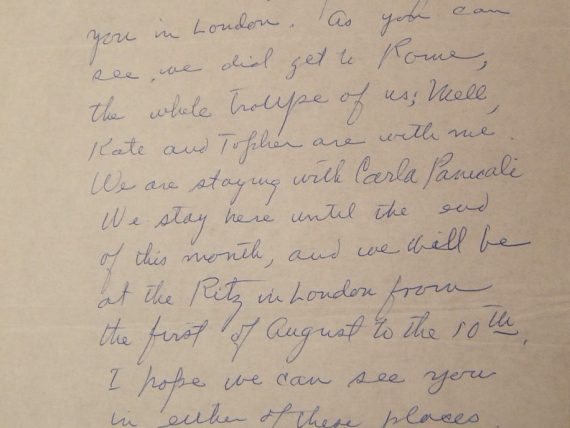 you in London. As you can
see, we did get to Rome,
the whole troupe of us; Mell,
Kate and Topher are with me.
We are staying with Carla Panicali
We stay here until the end
of this month, and we will be
at the Ritz in London from
the first of August to the 10th.
I hope we can see you
in either of these places.